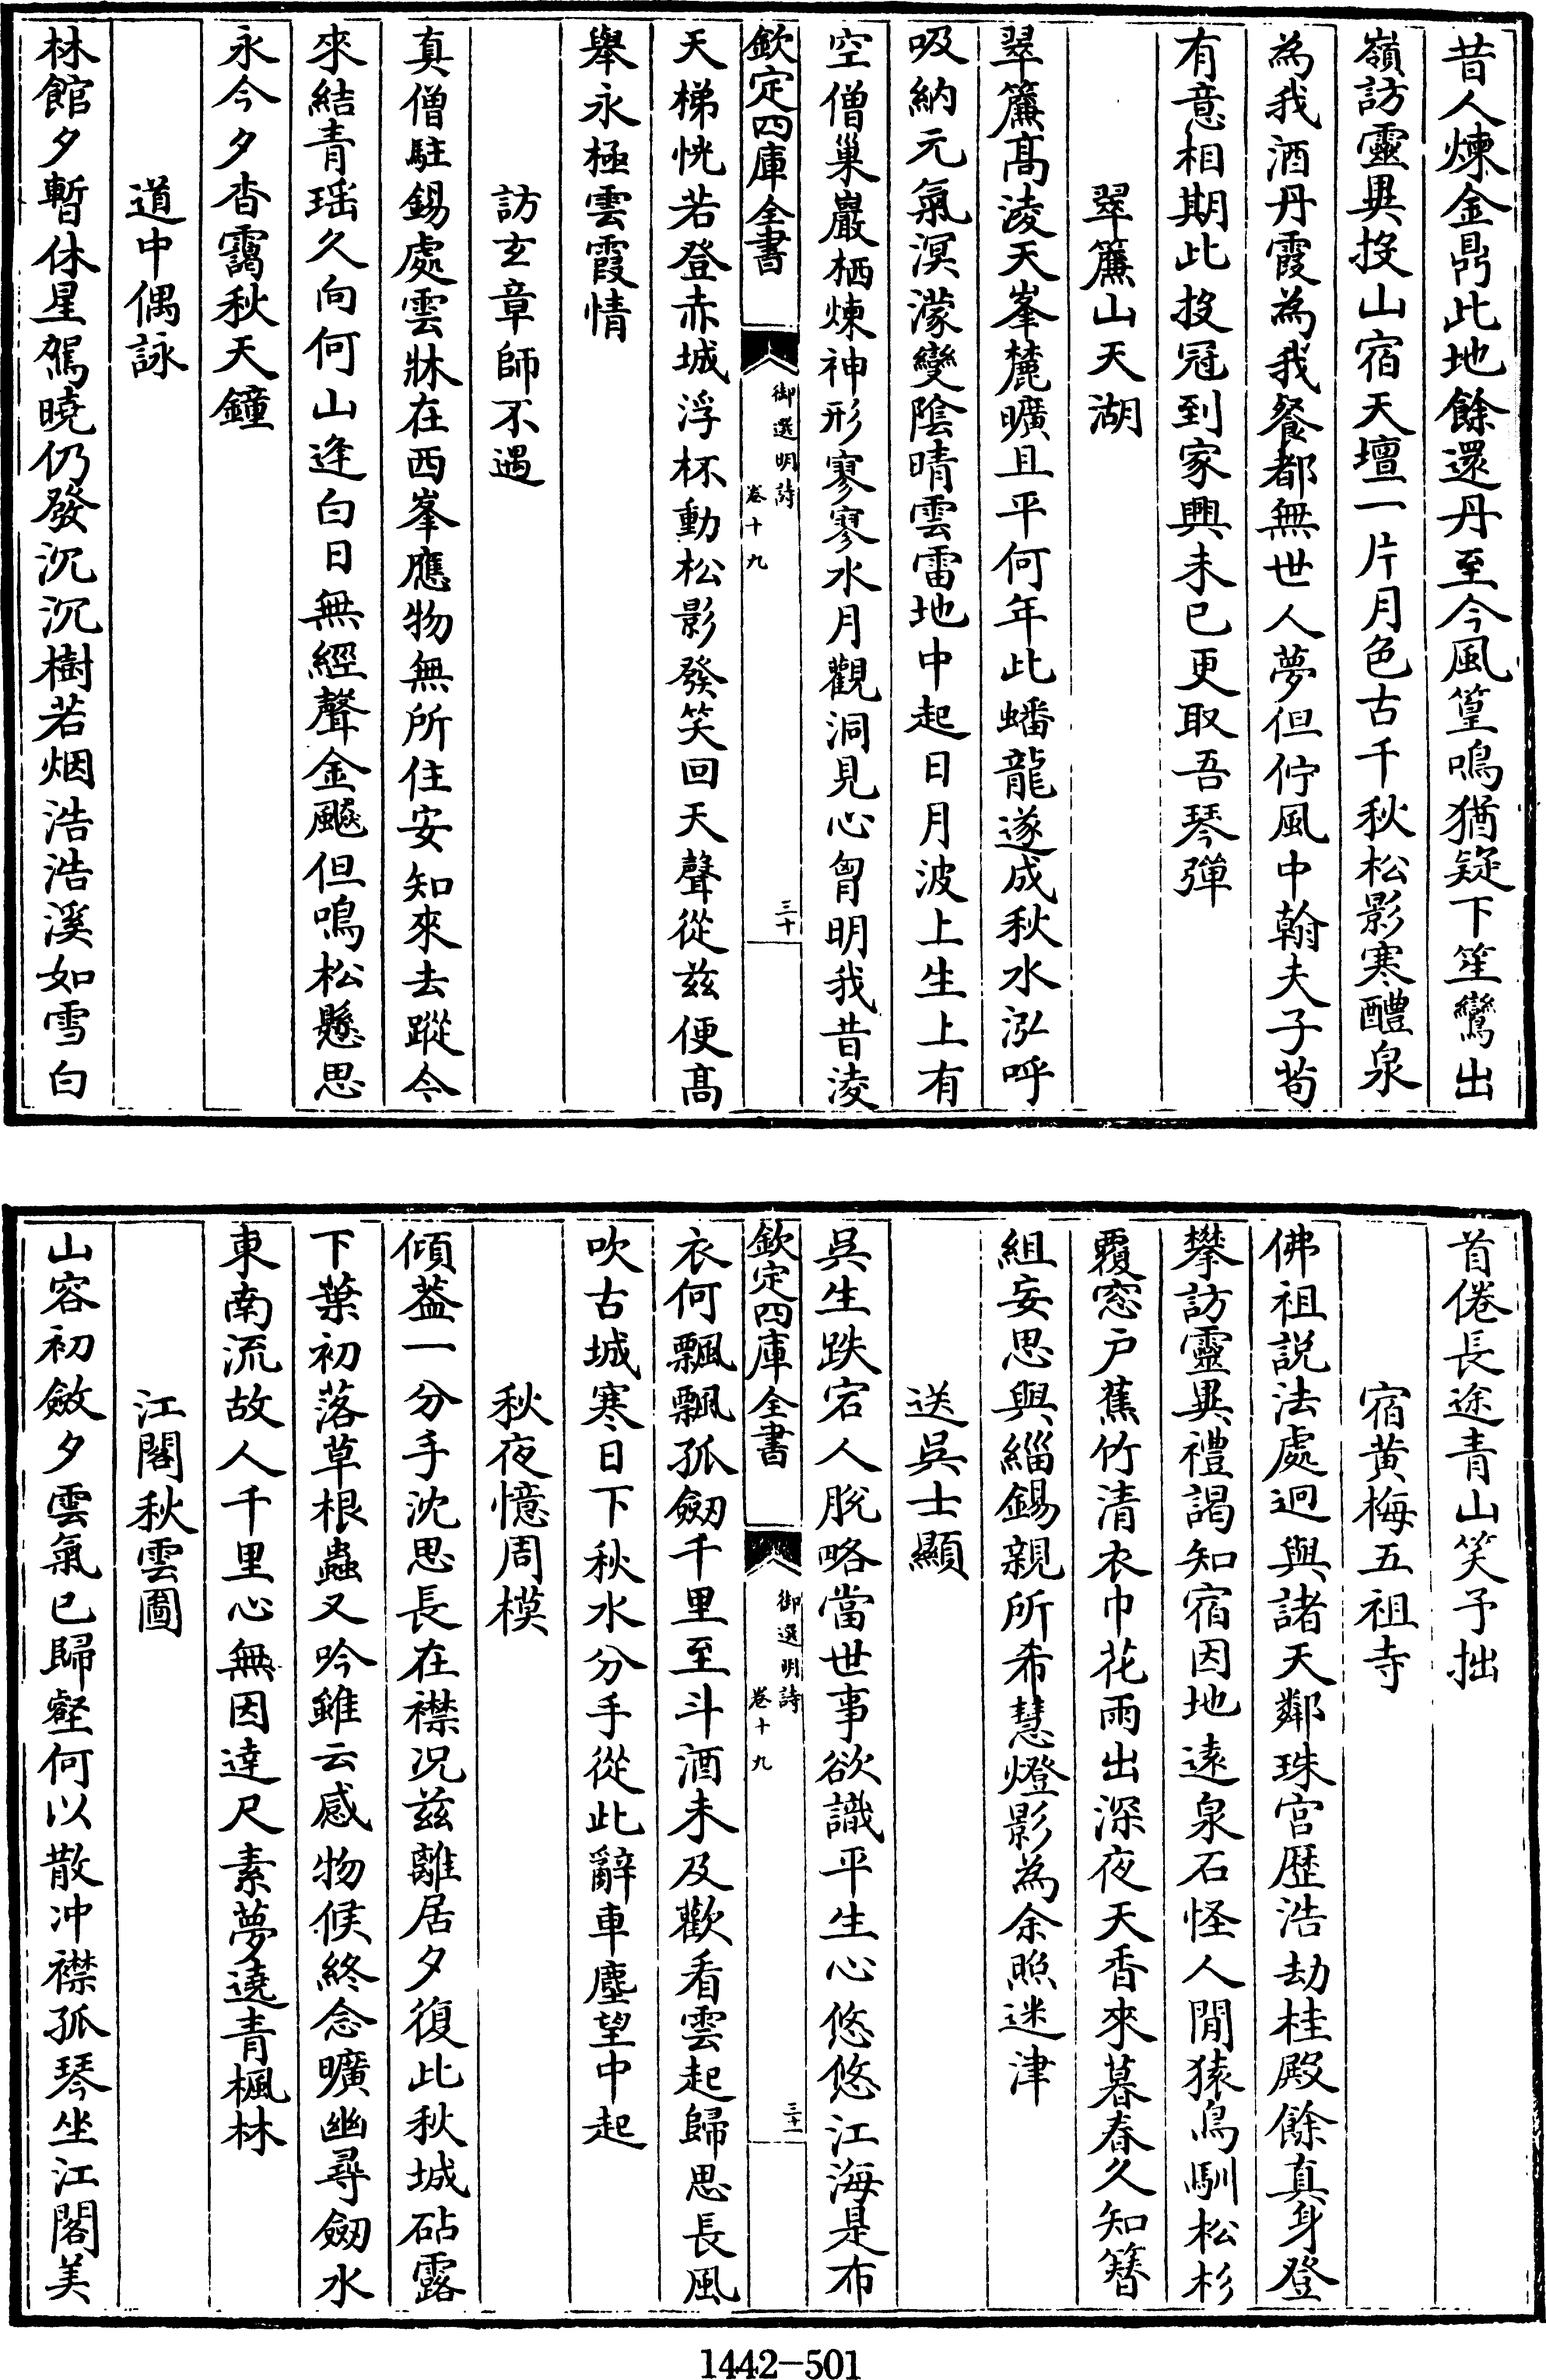 昔人煉金鼎此地餘還丹至今風篁鳴猶疑下笙鸞出
嶺訪靈異投山宿天壇一片月色古千秋松影寒醴泉
為我酒丹霞為我餐都無世人夢但佇風中翰夫子茍
有意相期此投冠到家興未已更取吾琴彈
翠簾山天湖
翠簾高淩天峯麓曠且平何年此蟠龍遂成秋水泓呼
吸納元氣溟濛變陰晴雲雷地中起日月波上生上有
空僧巢巖栖煉神形寥寥水月觀洞見心胷明我昔淩
欽定四庫全書
御選明詩
卷十九
三十
天梯恍若登赤城浮杯動松影發笑回天聲從兹便高
舉永極雲霞情
訪玄章師不遇
真僧駐錫處雲牀在西峯應物無所住安知來去蹤今
來結青瑶久向何山逢白日無經聲金飈但鳴松懸思
永今夕杳靄秋天鐘
道中偶詠
林館夕暫休星駕曉仍發沉沉樹若烟浩浩溪如雪白
首倦長途青山笑予拙
宿黄梅五祖寺
佛祖説法處迥與諸天鄰珠宫歴浩劫桂殿餘真身登
攀訪靈異禮謁知宿因地遠泉石怪人閒猿鳥馴松杉
覆窓户蕉竹清衣巾花雨出深夜天香來暮春久知簪
組妄思與緇錫親所希慧燈影為余照迷津
送吳士顯
吳生跌宕人脫略當世事欲識平生心悠悠江海是布
欽定四庫全書
御選明詩
卷十九
三十一
衣何飄飄孤劒千里至斗酒未及歡看雲起歸思長風
吹古城寒日下秋水分手從此辭車塵望中起
秋夜憶周模
傾葢一分手沈思長在襟况兹離居夕復此秋城砧露
下葉初落草根蟲又吟雖云感物候終念曠幽尋劒水
東南流故人千里心無因達尺素夢遶青楓林
江閣秋雲圖
山容初斂夕雲氣已歸壑何以散冲襟孤琴坐江閣美
1442-501